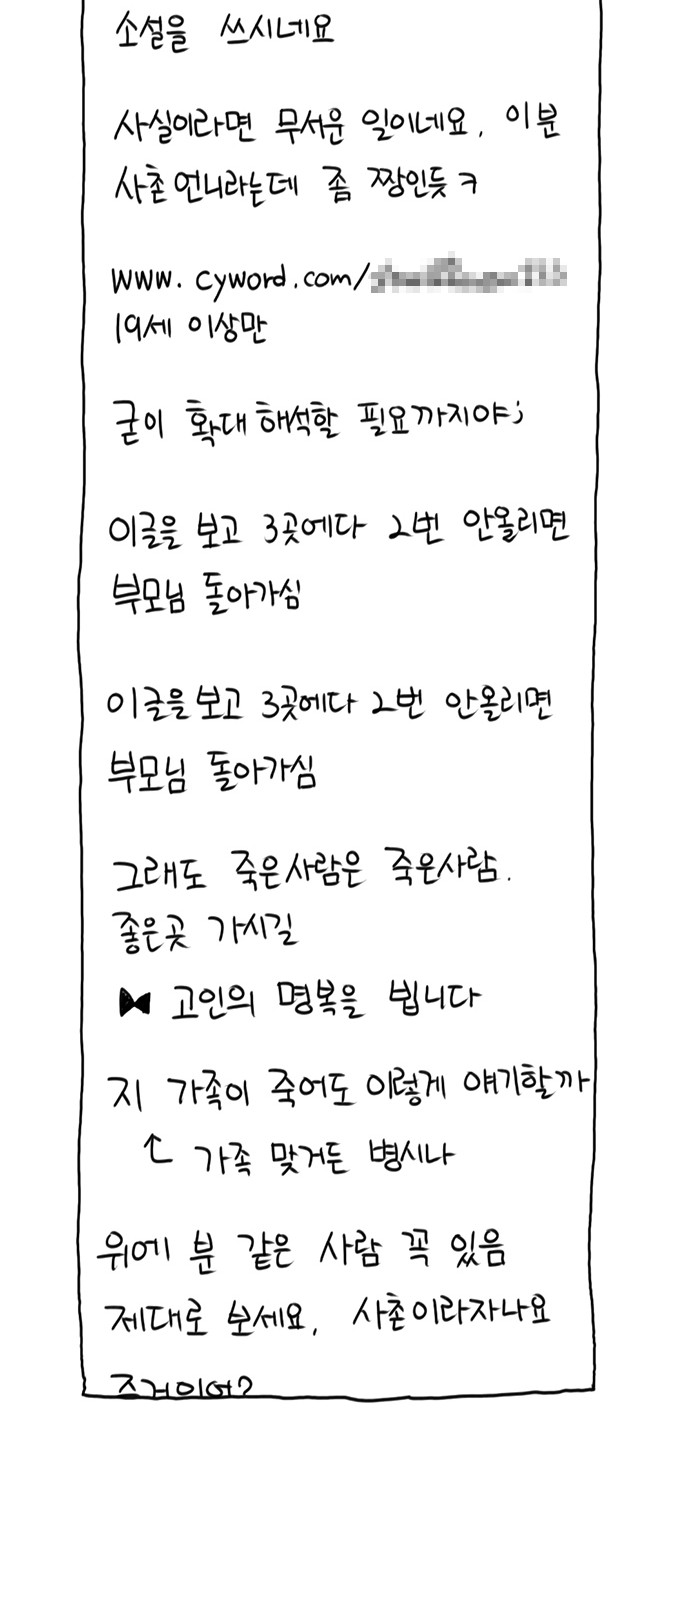 소설을 쓰시네요
사실이라면 무서운 일이네요. 이분
사촌언니라는데 좀 짱인듯ㅋ
www.cyword.com/
19세 이상만
굳이 확대해석할 필요까지야;
이글을 보고 3곳에다 2번 안올리면
부모님 돌아가심
이글을보고 3곳에다 2번 안올리면
부모님 돌아가심
그래도 죽은사람은 죽은사람.
좋은곳 가시길
▶◀ 고인의 명복을 빕니다
지 가족이 죽어도 이렇게 얘기할까
↑ 가족 맞거든 병시나
위에 분 같은 사람 꼭 있음
제대로 보세요, 사촌이라자나요